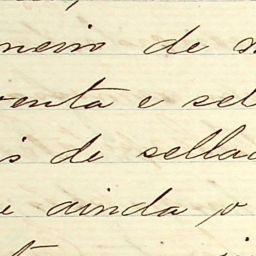 neiro de
venta e set
s de sellad
e ainda o